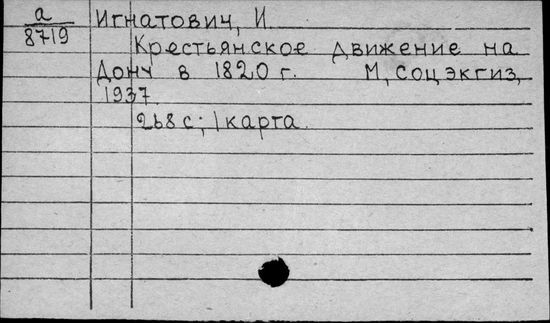 а
8719
Игнатович, И
Крестьянское движение на
Дону в 1820 г. М, Соцэкгиз,
1937.
268 с; 1 карта.